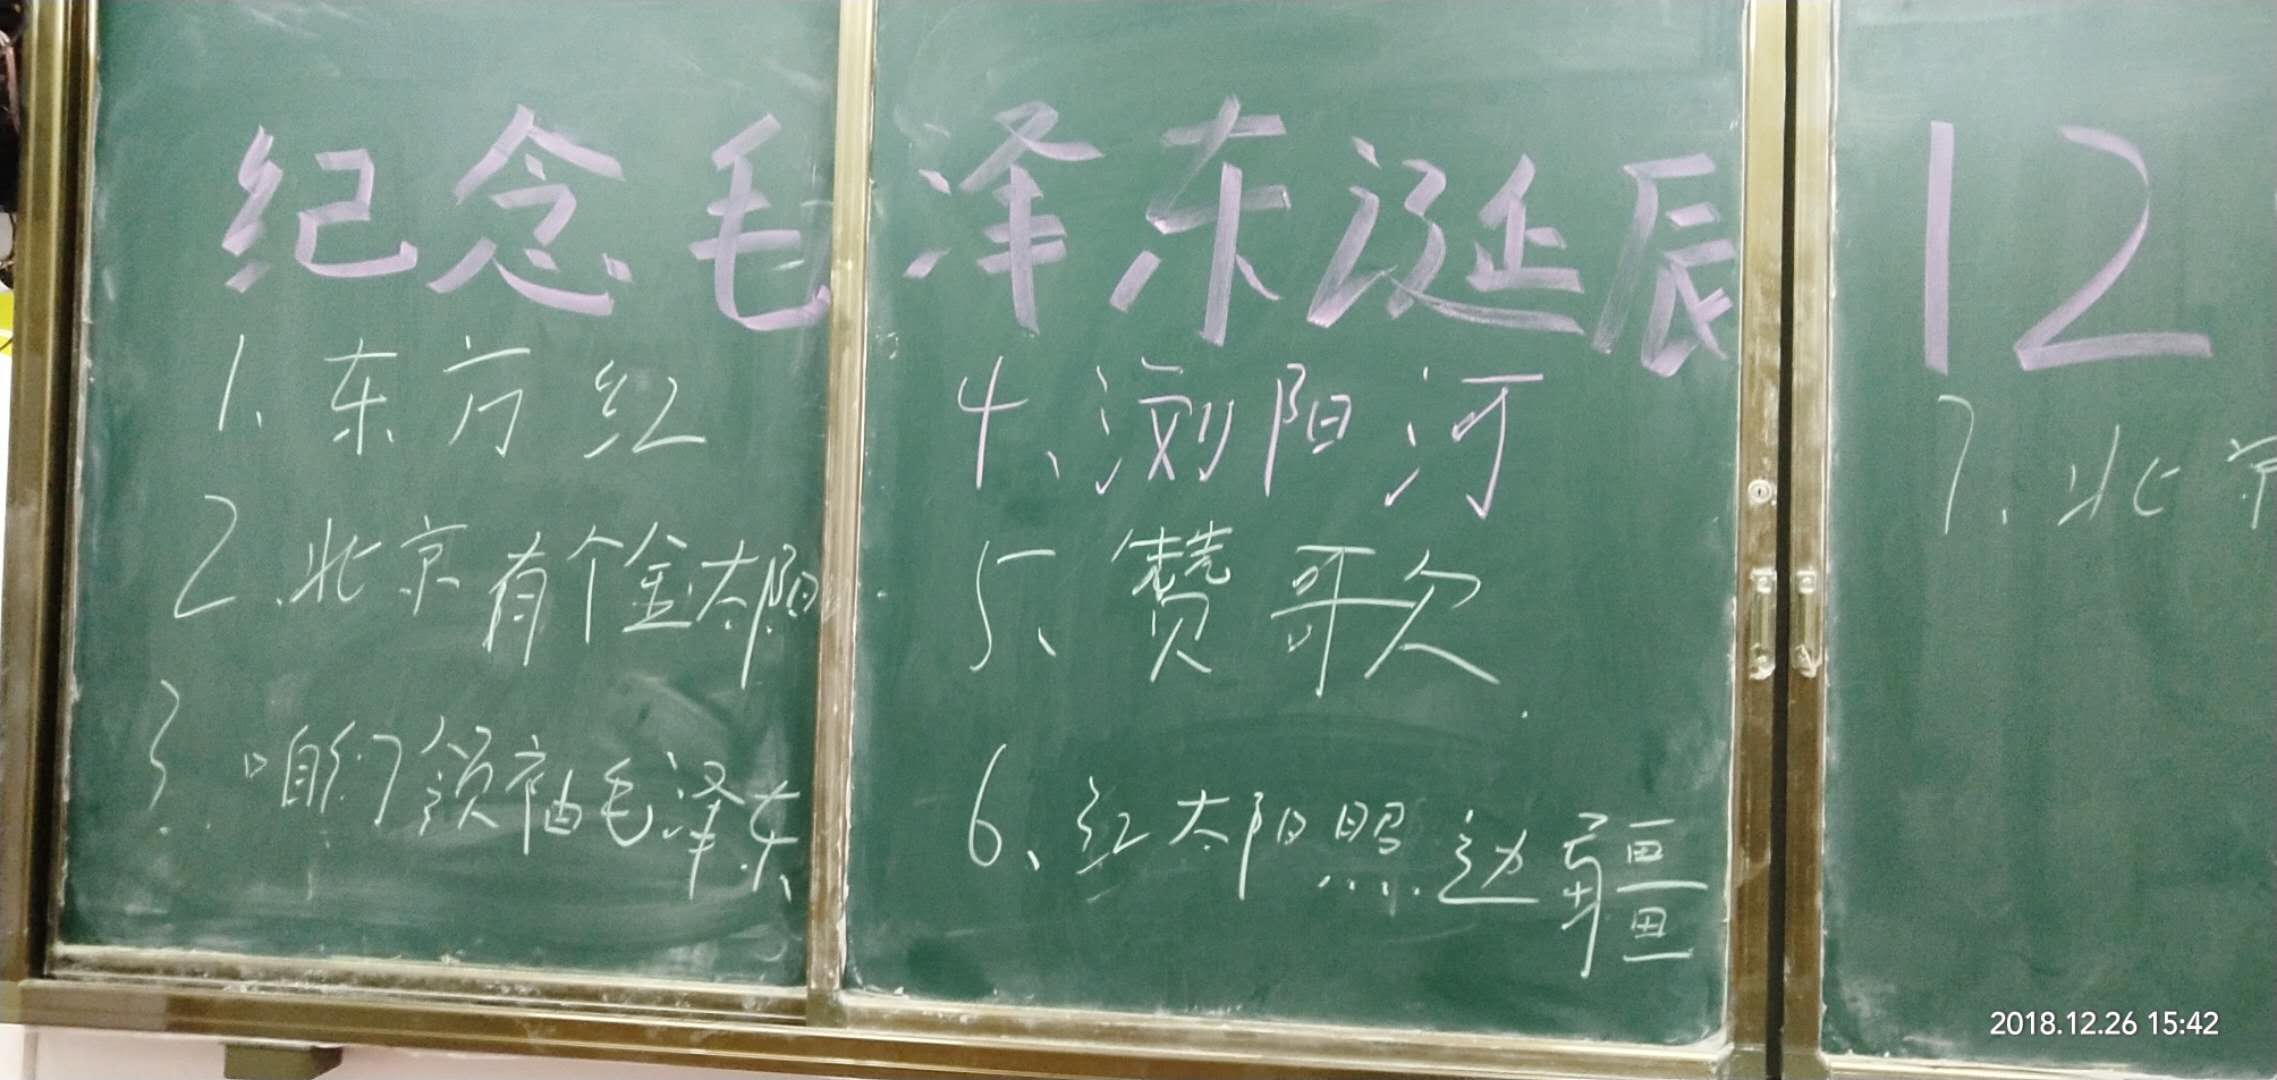 纪念毛泽东诞辰12
1、东方红
2、北京有个金太阳
3、咱们领袖毛泽东
4、浏阳河
5、赞歌
6、红太阳照边疆
7、北京
2018.12.26 15:42